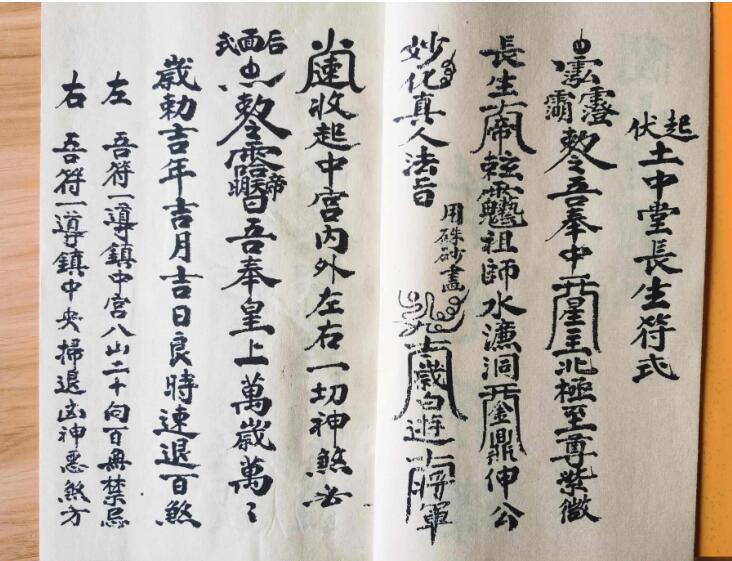 起伏土中堂長生符式
敕令吾奉中斗星主北極至尊紫微
長生大帝玄靈祖師水濂洞金鼎仙公
妙化真人法旨
用硃砂畫
太歲白遊大將軍
小速收起中宮內外左右一切神煞必
后面式
敕令吾奉皇上萬歲萬〻
歲勅吉年吉月吉日良時速退百煞
左 吾符一導鎮中宮八山二十向百無禁忌
右 吾符一導鎮中央掃退凶神惡煞方